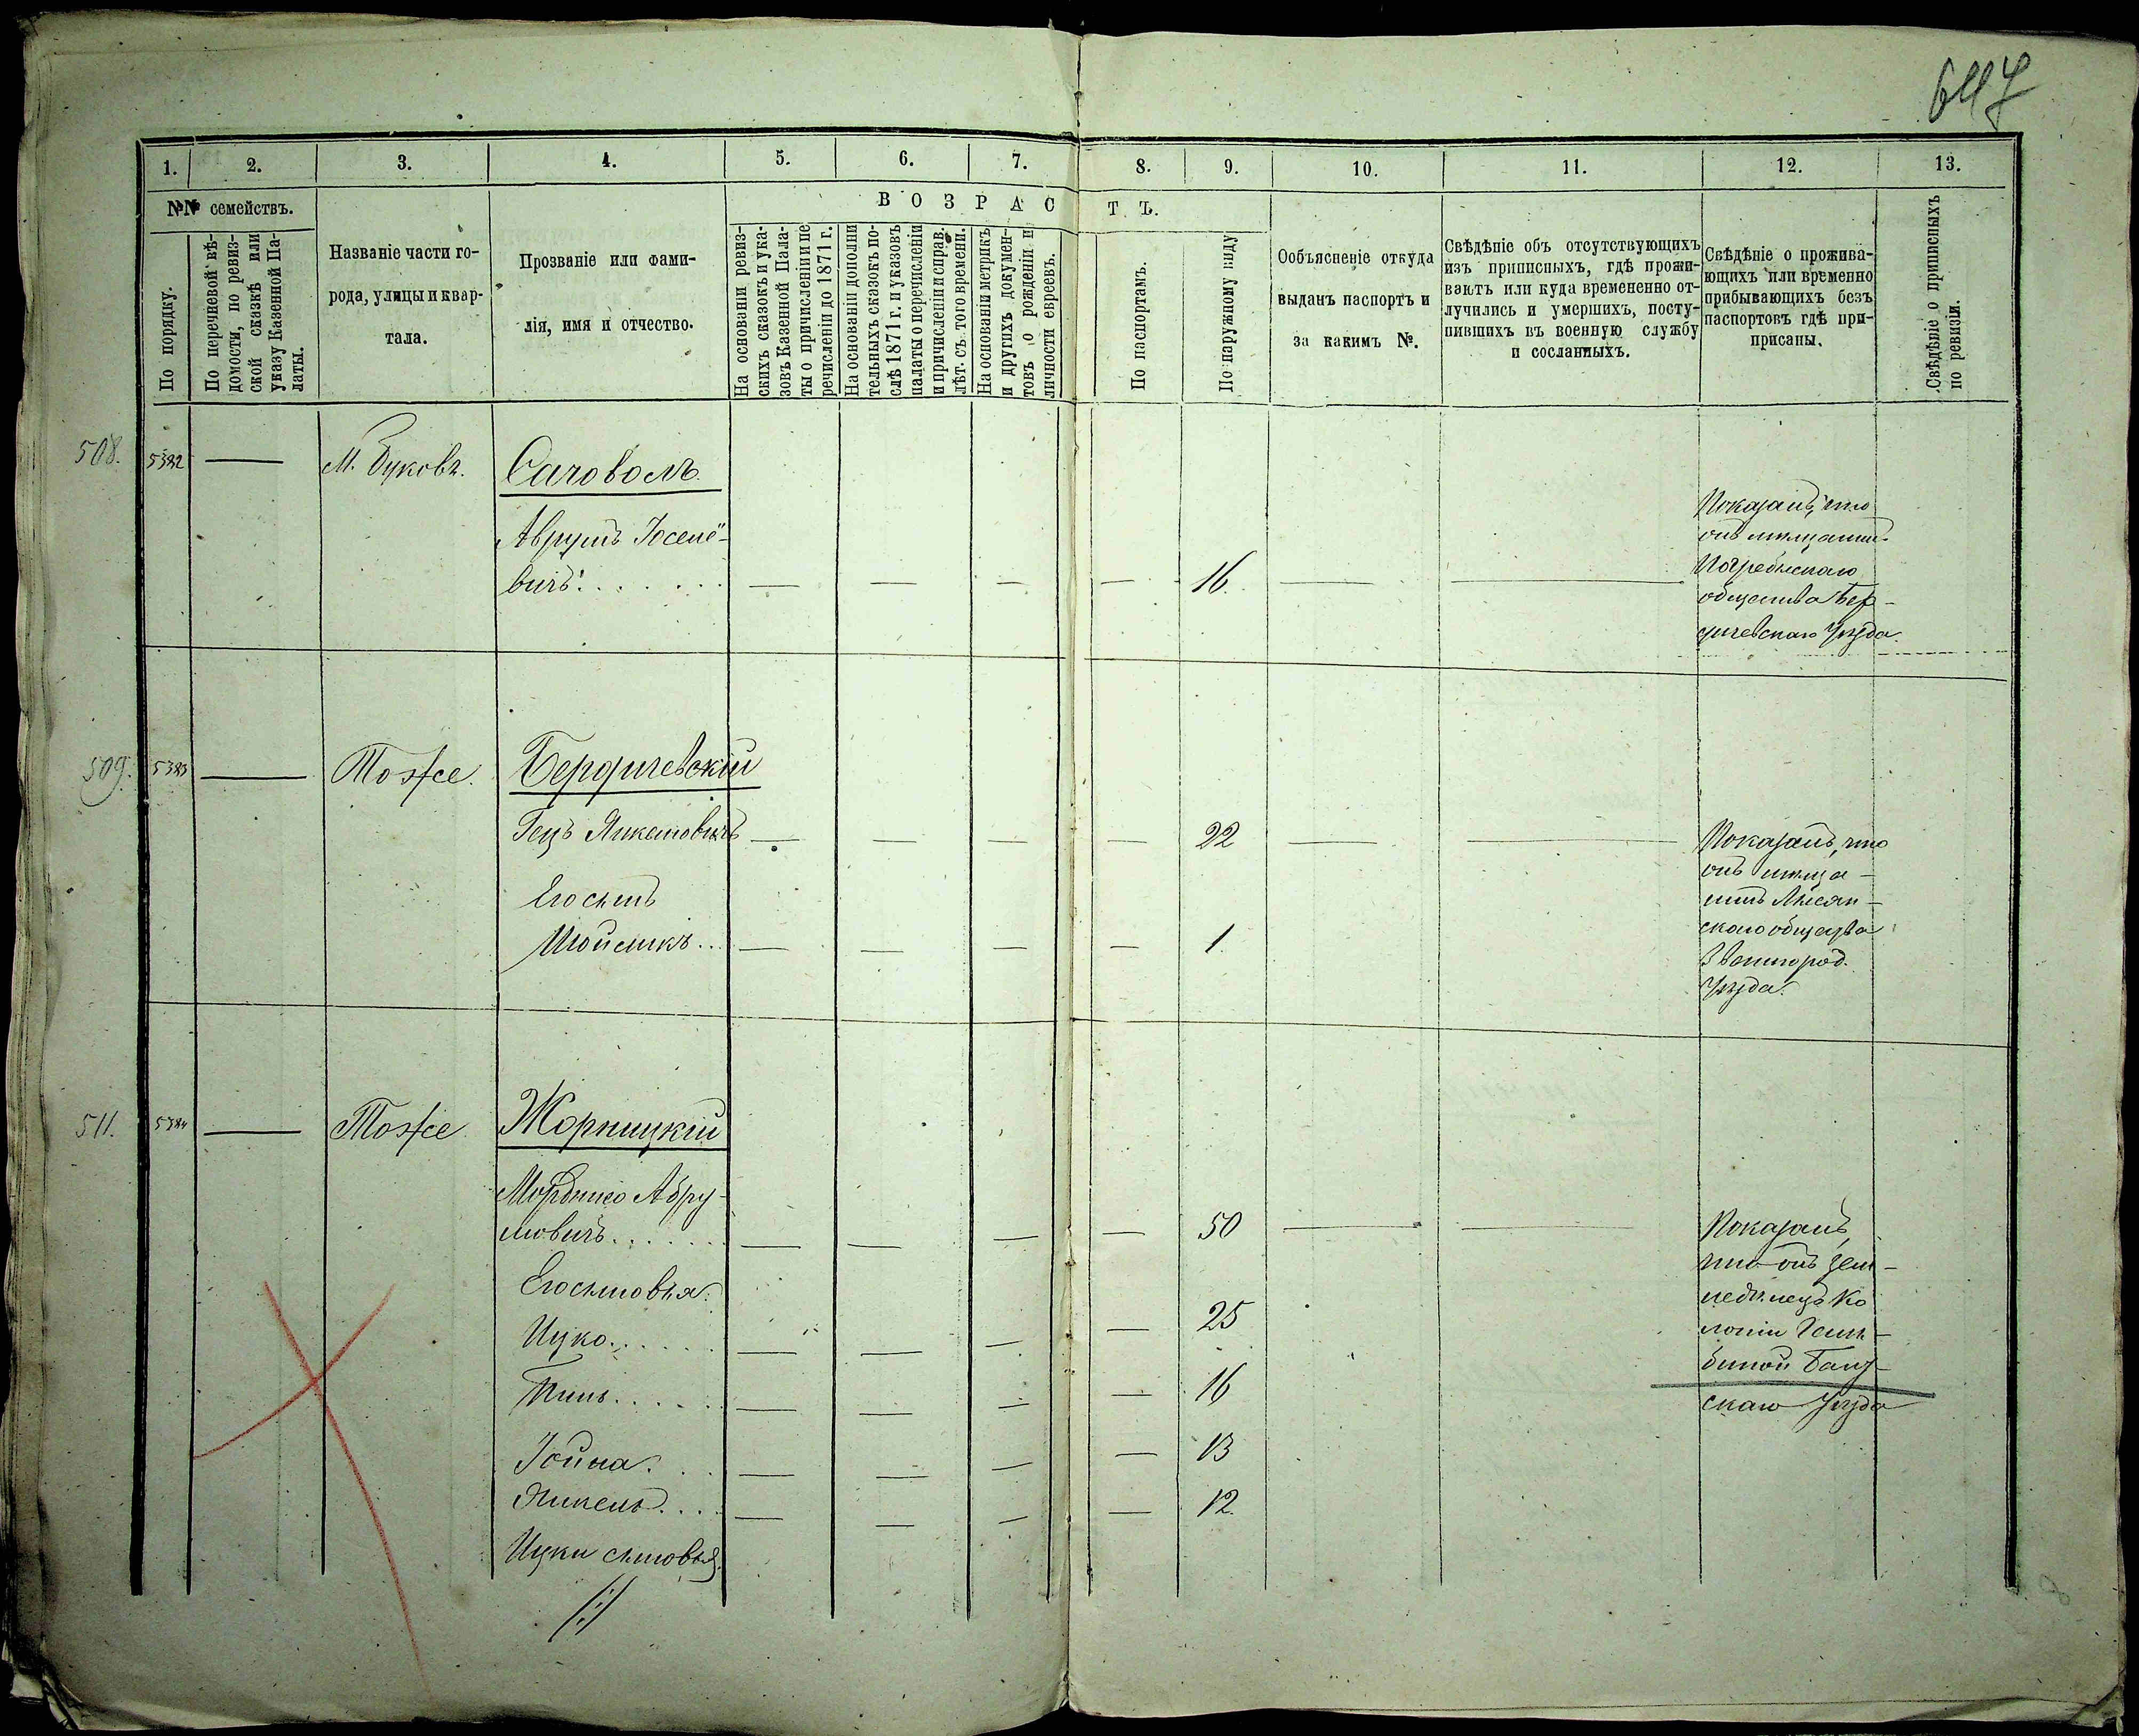 647
1. 2. 3. 4. 5. 6. 7. 8. 9. 10. 11. 12. 13.
№№ семействъ.
По порядку.
По перечневой вѣ-
домости, по ревиз-
ской сказкѣ или
указу Казенной Па-
латы.
Названіе части го-
рода, улицы и квар-
тала.
Прозваніе или фами-
лія, имя и отчество.
ВОЗРАСТЪ.
На основаніи ревиз-
скихъ сказокъ и ука-
зовъ Казенной Пала-
ты о причисленіи и пе
речисленіи до 1871 г.
На основаніи дополни
тельныхъ сказокъ по-
слѣ 1871 г. и указовъ
палаты о перечисленіи
и причисленіи и справ.
лѣт. съ того времени.
На основаніи метрикъ
и другихъ докумен-
товъ о рожденіи и
личности евреевъ.
По паспортамъ.
По наружному виду
Ообъясненіе откуда
выданъ паспортъ и
за какимъ №.
Свѣдѣніе объ отсутствующихъ
изъ приписныхъ, гдѣ прожи-
ваютъ или куда временно от-
лучились и умершихъ, посту-
пившихъ въ военную службу
и сосланныхъ.
Свѣдѣніе о прожива-
ющихъ или временно
прибывающихъ безъ
паспортовъ гдѣ при-
писаны.
Свѣдѣніе о приписныхъ
по ревизіи.
508. 5382 — М. Буковъ. Саговолъ.
Аврумъ Іоселе-
вичъ. — — — — 16. — —
Показалъ, что
онъ мѣщанинъ
Погребискаго
общества Бер-
дичевскаго Уѣзда.
509. 5383 — Тоже. Бердичевскій
Гецъ Янкелевичъ — — — — 22 — —
Его сынъ
Мойсикъ... — — — — 1
Показалъ, что
онъ мѣща-
нинъ Лысян-
скаго общества
Звенигород.
Уѣзда.
511. 5384 — Тоже Жорницкій
Мордко Абру-
мовичъ — — — — 50 — —
Его сыновья:
Ицко. — — — — 25
Пинь. — — — — 16
Іойна. — — — — 13
Янкель. — — — — 12.
Ицки сыновья
Показалъ,
что онъ зем-
ледѣлецъ Ко
лоніи
скаго Уѣзда